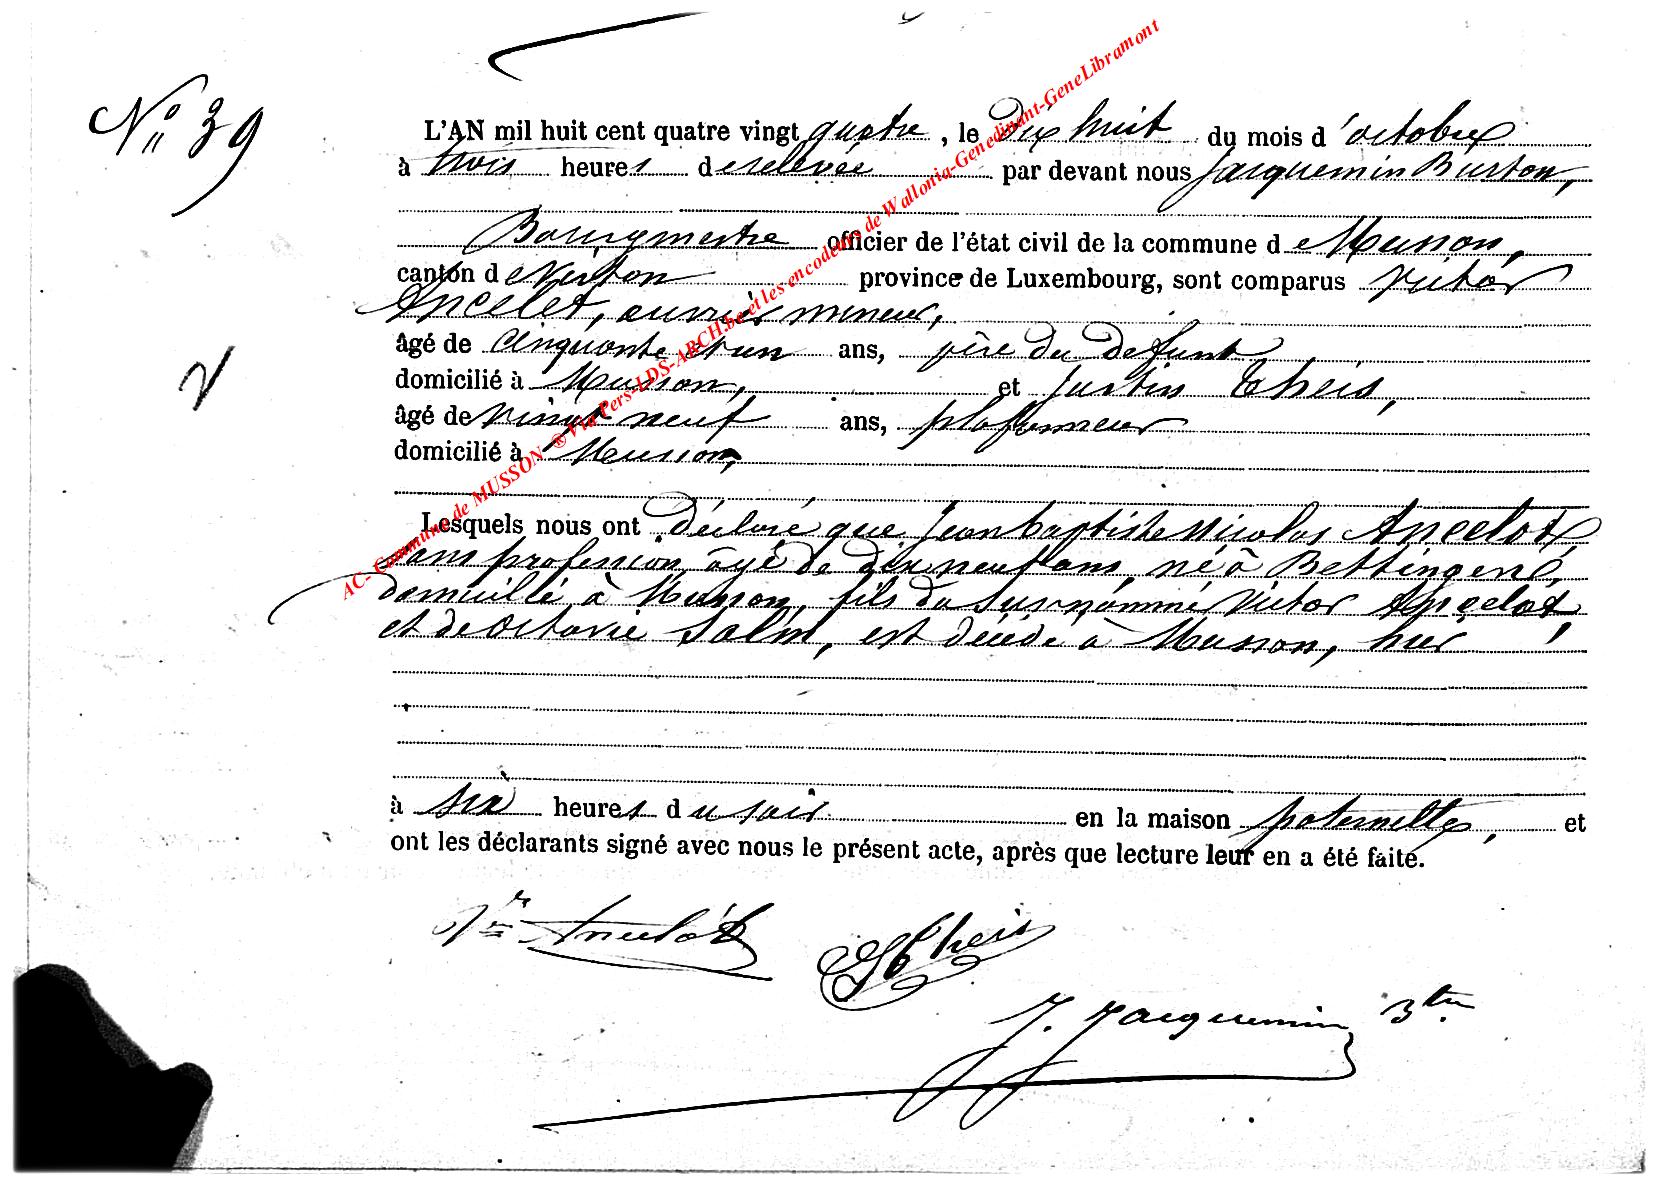 N° 39
L'AN mil huit cent quatre vingt quatre, le dix huit du mois d'octobre
à trois heures de relevée par devant nous Jacquemin Burton,
Bourgmestre officier de l'état civil de la commune de Musson,
canton de Virton province de Luxembourg, sont comparus Victor
Ancelet, ouvrier mineur,
âgé de cinquante et un ans, père du defunt
domicilié à Musson, et Justin Theis,
âgé de vingt neuf ans, plafonneur
domicilié à Musson,
Lesquels nous ont déclaré que Jean baptiste Nicolas Ancelot,
sans profession, âgé de dix neuf ans, né à
domicilié à Musson, fils du susnommé Victor Ancelot,
et de Octavie Salm, est décédé à Musson, hier
à six heures du soir en la maison paternelle, et
ont les déclarants signé avec nous le présent acte, après que lecture leur en a été faite.
Vor Ancelot
J Theis
J. Jacquemin Btn.
AC- Commune de MUSSON ® Via Pers-LDS-ARCH.be et les encodeurs de Wallonia-Genedinant-GeneLibramont